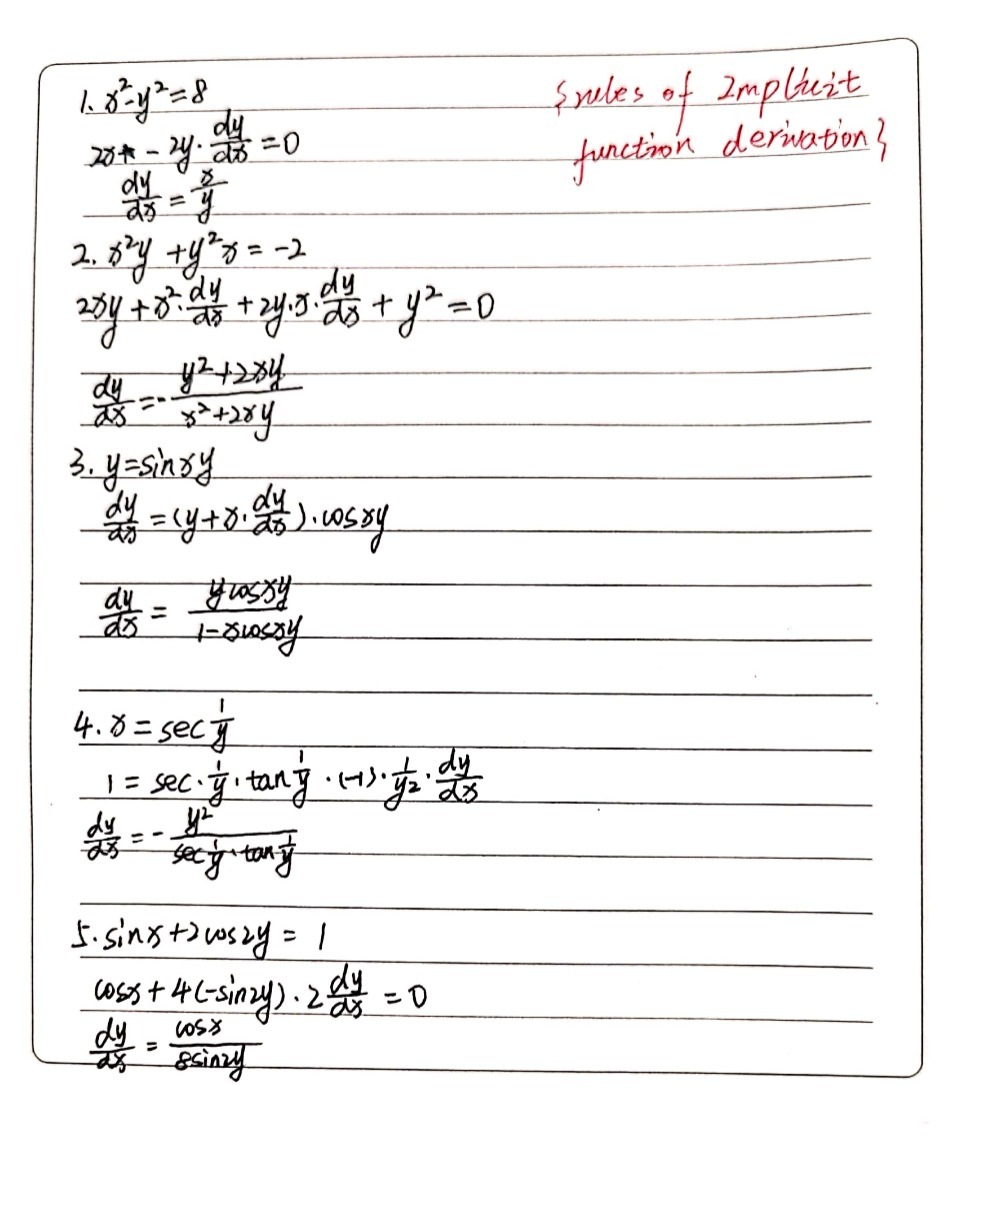 {rules of Implicit
function derivation}
1. x²-y²=8
2x - 2y·dy/dx=0
dy/dx = x/y
2. x²y +y²x = -2
2xy + x²·dy/dx + 2y·x·dy/dx + y² = 0
dy/dx = - (y²+2xy)/(x²+2xy)
3. y=sinxy
dy/dx = (y+x·dy/dx)·cosxy
dy/dx = ycosxy/(1-xcosxy)
4. x = sec 1/y
1 = sec·1/y·tan 1/y·(-1)·1/y²·dy/dx
dy/dx = - y²/(sec 1/y·tan 1/y)
5. sinx+2cos2y = 1
cosx + 4(-sin2y)·2 dy/dx = 0
dy/dx = cosx/8sin2y